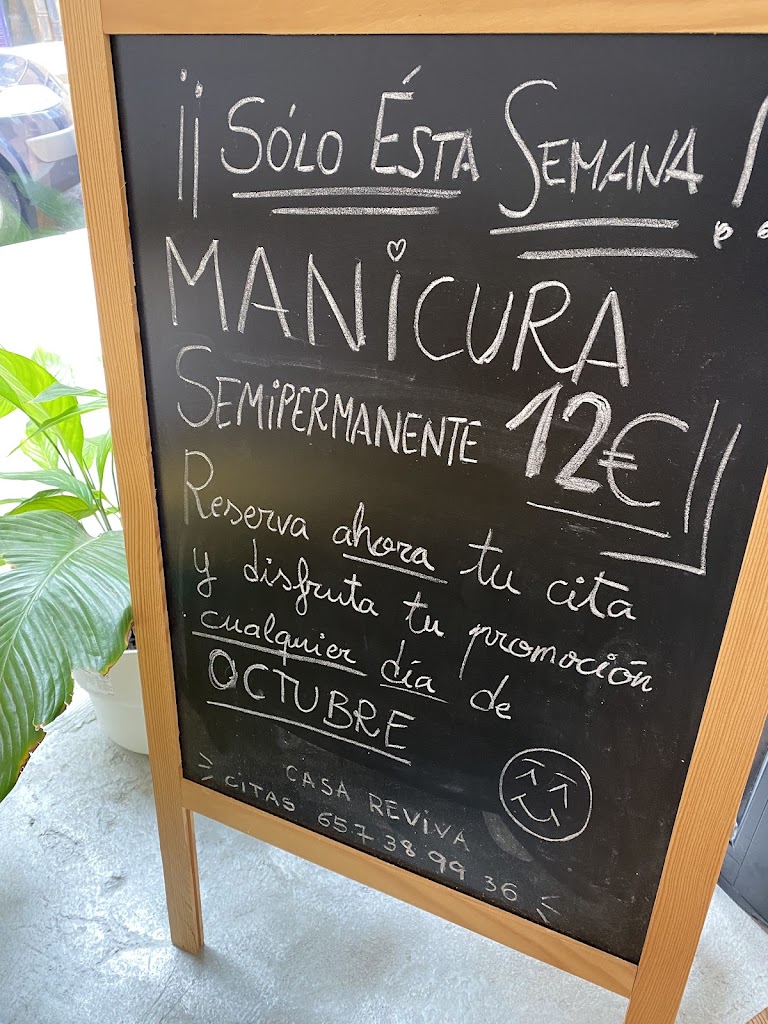 ¡¡SÓLO ÉSTA SEMANA!!
MANiCURA
SEMiPERMANENTE 12€
Reserva ahora tu cita
y disfruta tu promoción
cualquier día de
OCTUBRE
CASA REViVA
CiTAS 657 38 99 36